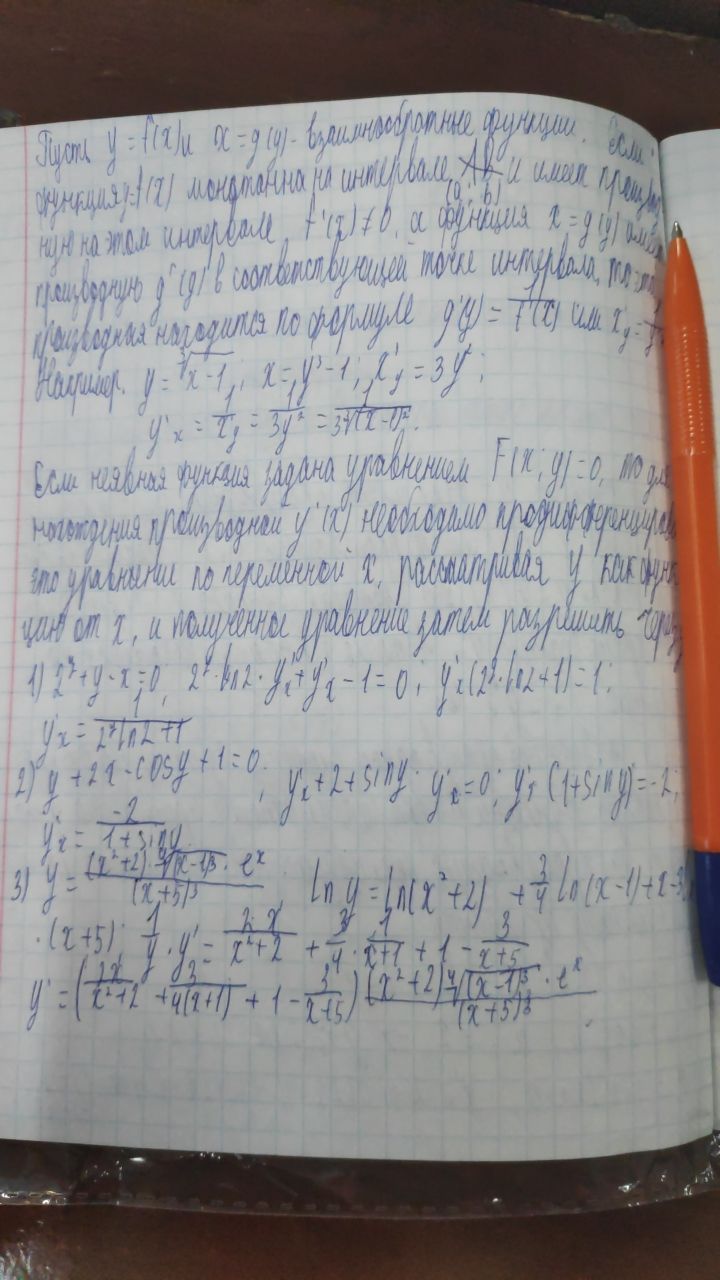 Пусть y = f(x) и x = g(y) - взаимнообратные функции. Если
функция y=f(x) монотонна на интервале (a; b) и имеет
ную на этом интервале f'(x) ≠ 0, а функция x = g(y)
производную g'(y) в соответствующей точке интервала, то
производная находится по формуле g'(y) = 1/f'(x) или
Например. y = ∛x-1; x = y³-1; x'y = 3y²;
y'x = 1/x'y = 1/3y² = 1/3∛(x-1)².
Если неявная функция задана уравнением F(x; y)=0, то для
нахождения производной y'(x) необходимо
это уравнение по переменной x, рассматривая y как
цию от x, и полученное уравнение затем разрешить
1) 2ʸ+y-x=0, 2ʸ·ln2·y'x+y'x-1=0; y'x(2ʸ·ln2+1)=1;
y'x = 1/2ʸln2+1
2) y+2x-cosy+1=0; y'x+2+siny· y'x=0; y'x (1+siny)=-2;
y'x = -2/1+siny.
3) y = (x²+2)·⁴√(x-1)³·eˣ/(x+5)³ ln y = ln(x²+2) + 3/4 ln(x-1)+x-3
·(x+5) 1/y·y' = 2x/x²+2 + 3/4·1/x+1 + 1 - 3/x+5
y' = (2x/x²+2 + 3/4(x+1) + 1 - 3/x+5) (x²+2)⁴√(x-1)³·eˣ/(x+5)³